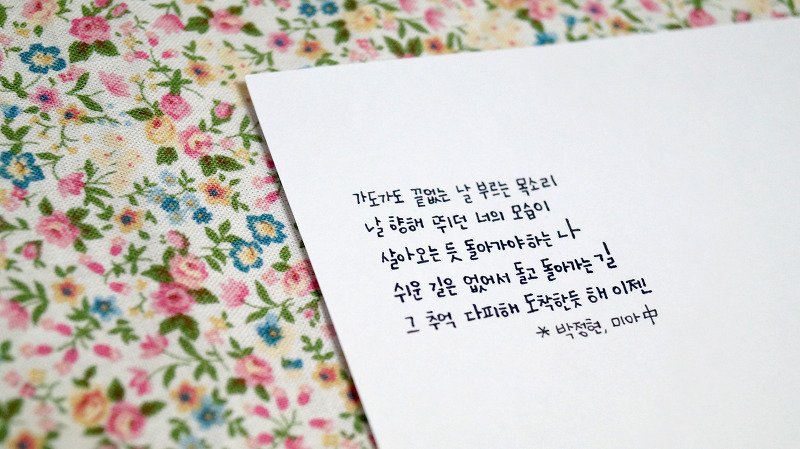 가도가도 끝없는 날 부르는 목소리
날 향해 뛰던 너의 모습이
살아오는 듯 돌아가야 하는 나
쉬운 길은 없어서 돌고 돌아가는 길
그 추억 다 피해 도착한듯 해 이젠
* 박정현, 미아 中